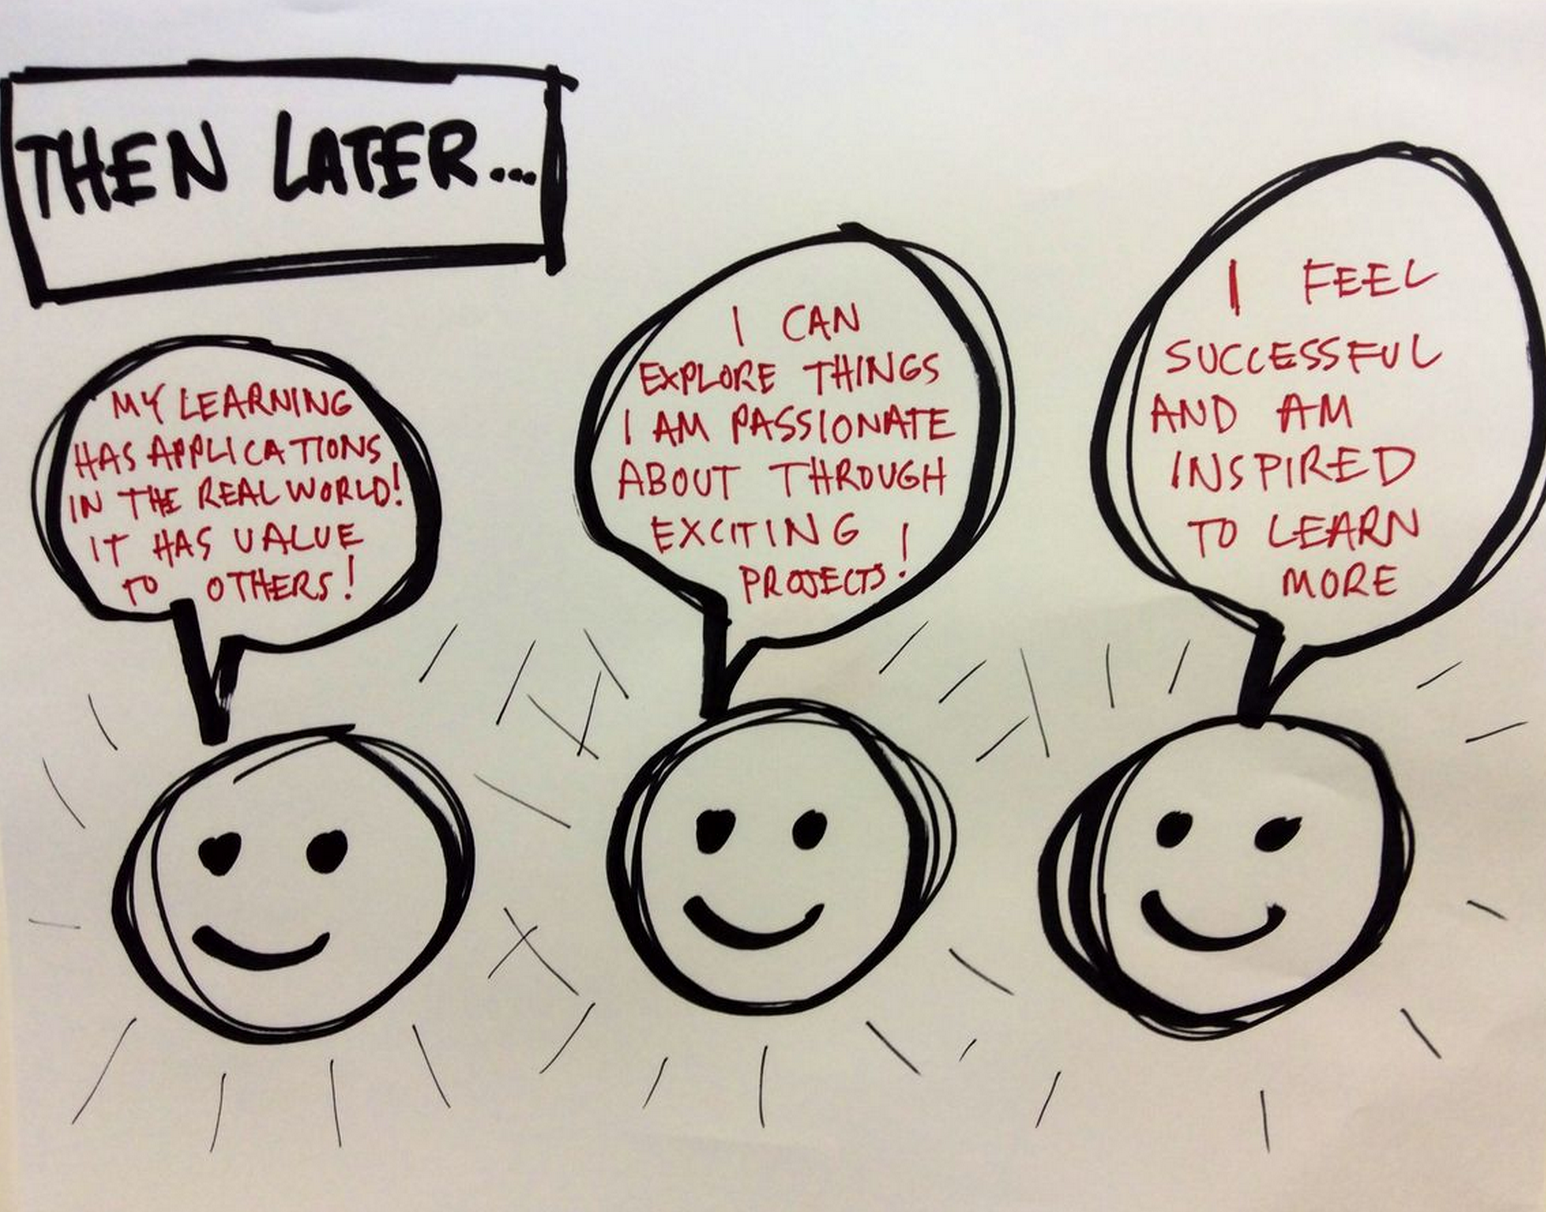 THEN LATER...
MY LEARNING
HAS APPLICATIONS
IN THE REAL WORLD!
IT HAS VALUE
TO OTHERS!
I CAN
EXPLORE THINGS
I AM PASSIONATE
ABOUT THROUGH
EXCITING
PROJECTS!
I FEEL
SUCCESSFUL
AND AM
INSPIRED
TO LEARN
MORE